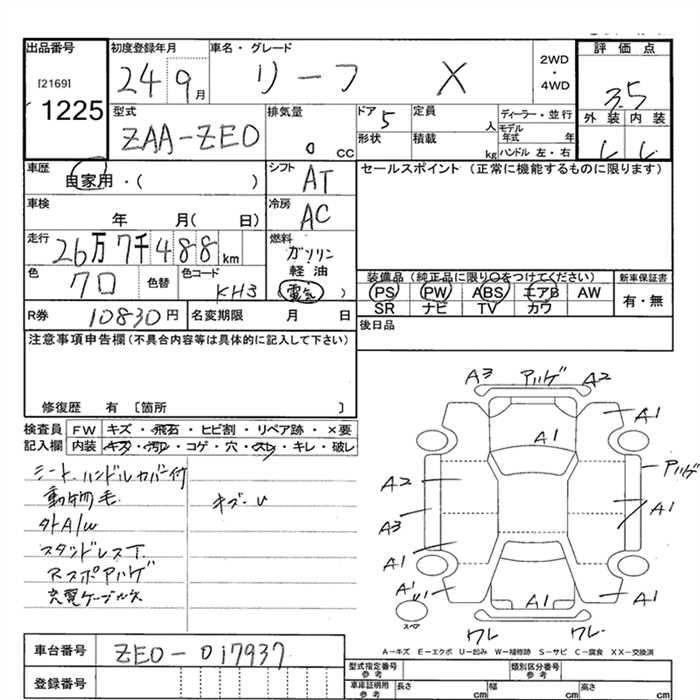 出品番号 初度登録年月 車名・グレード 2WD・4WD 評価点
[2169] 1225 24 9月 リーフ X 3.5
型式 排気量 ドア 定員 ディーラー・並行 外装 内装
ZAA-ZE0 0 CC 5 人 モデル年式 年
形状 積載 kg ハンドル 左・右
車歴 自家用・( ) シフト AT セールスポイント (正常に機能するものに限ります)
車検 年 月( 日) 冷房 AC
走行 26万7千488km 燃料 ガソリン 軽油 (電気)
色 クロ 色替 色コード KH3
装備品 (純正品に限り○をつけてください) 新車保証書
PS PW ABS エアB AW 有・無
SR ナビ TV カワ
R券 10830円 名変期限 月 日 後日品
注意事項申告欄 (不具合内容等は具体的に記入して下さい)
修復歴 有 〔箇所 〕
検査員記入欄 FW キズ・飛石・ヒビ割・リペア跡・×要
内装 キズ・汚れ・コゲ・穴・スレ・キレ・破レ
シート、ハンドルカバー付
動物毛 キズ-U
外A/W
スタッドレスT.
充電ケーブル欠
A3 アルゲ A2
A1
A1
A2 アルゲ
A3 A1
A1
A1 A1 A1
スペア ワレ ワレ
A-キズ E-エクボ U-凹み W-補修跡 S-サビ C-腐食 XX-交換済
車台番号 ZE0-017937
登録番号
型式指定番号 参考 類別区分番号 参考
車庫証明用 参考 長さ cm 幅 cm 高さ cm